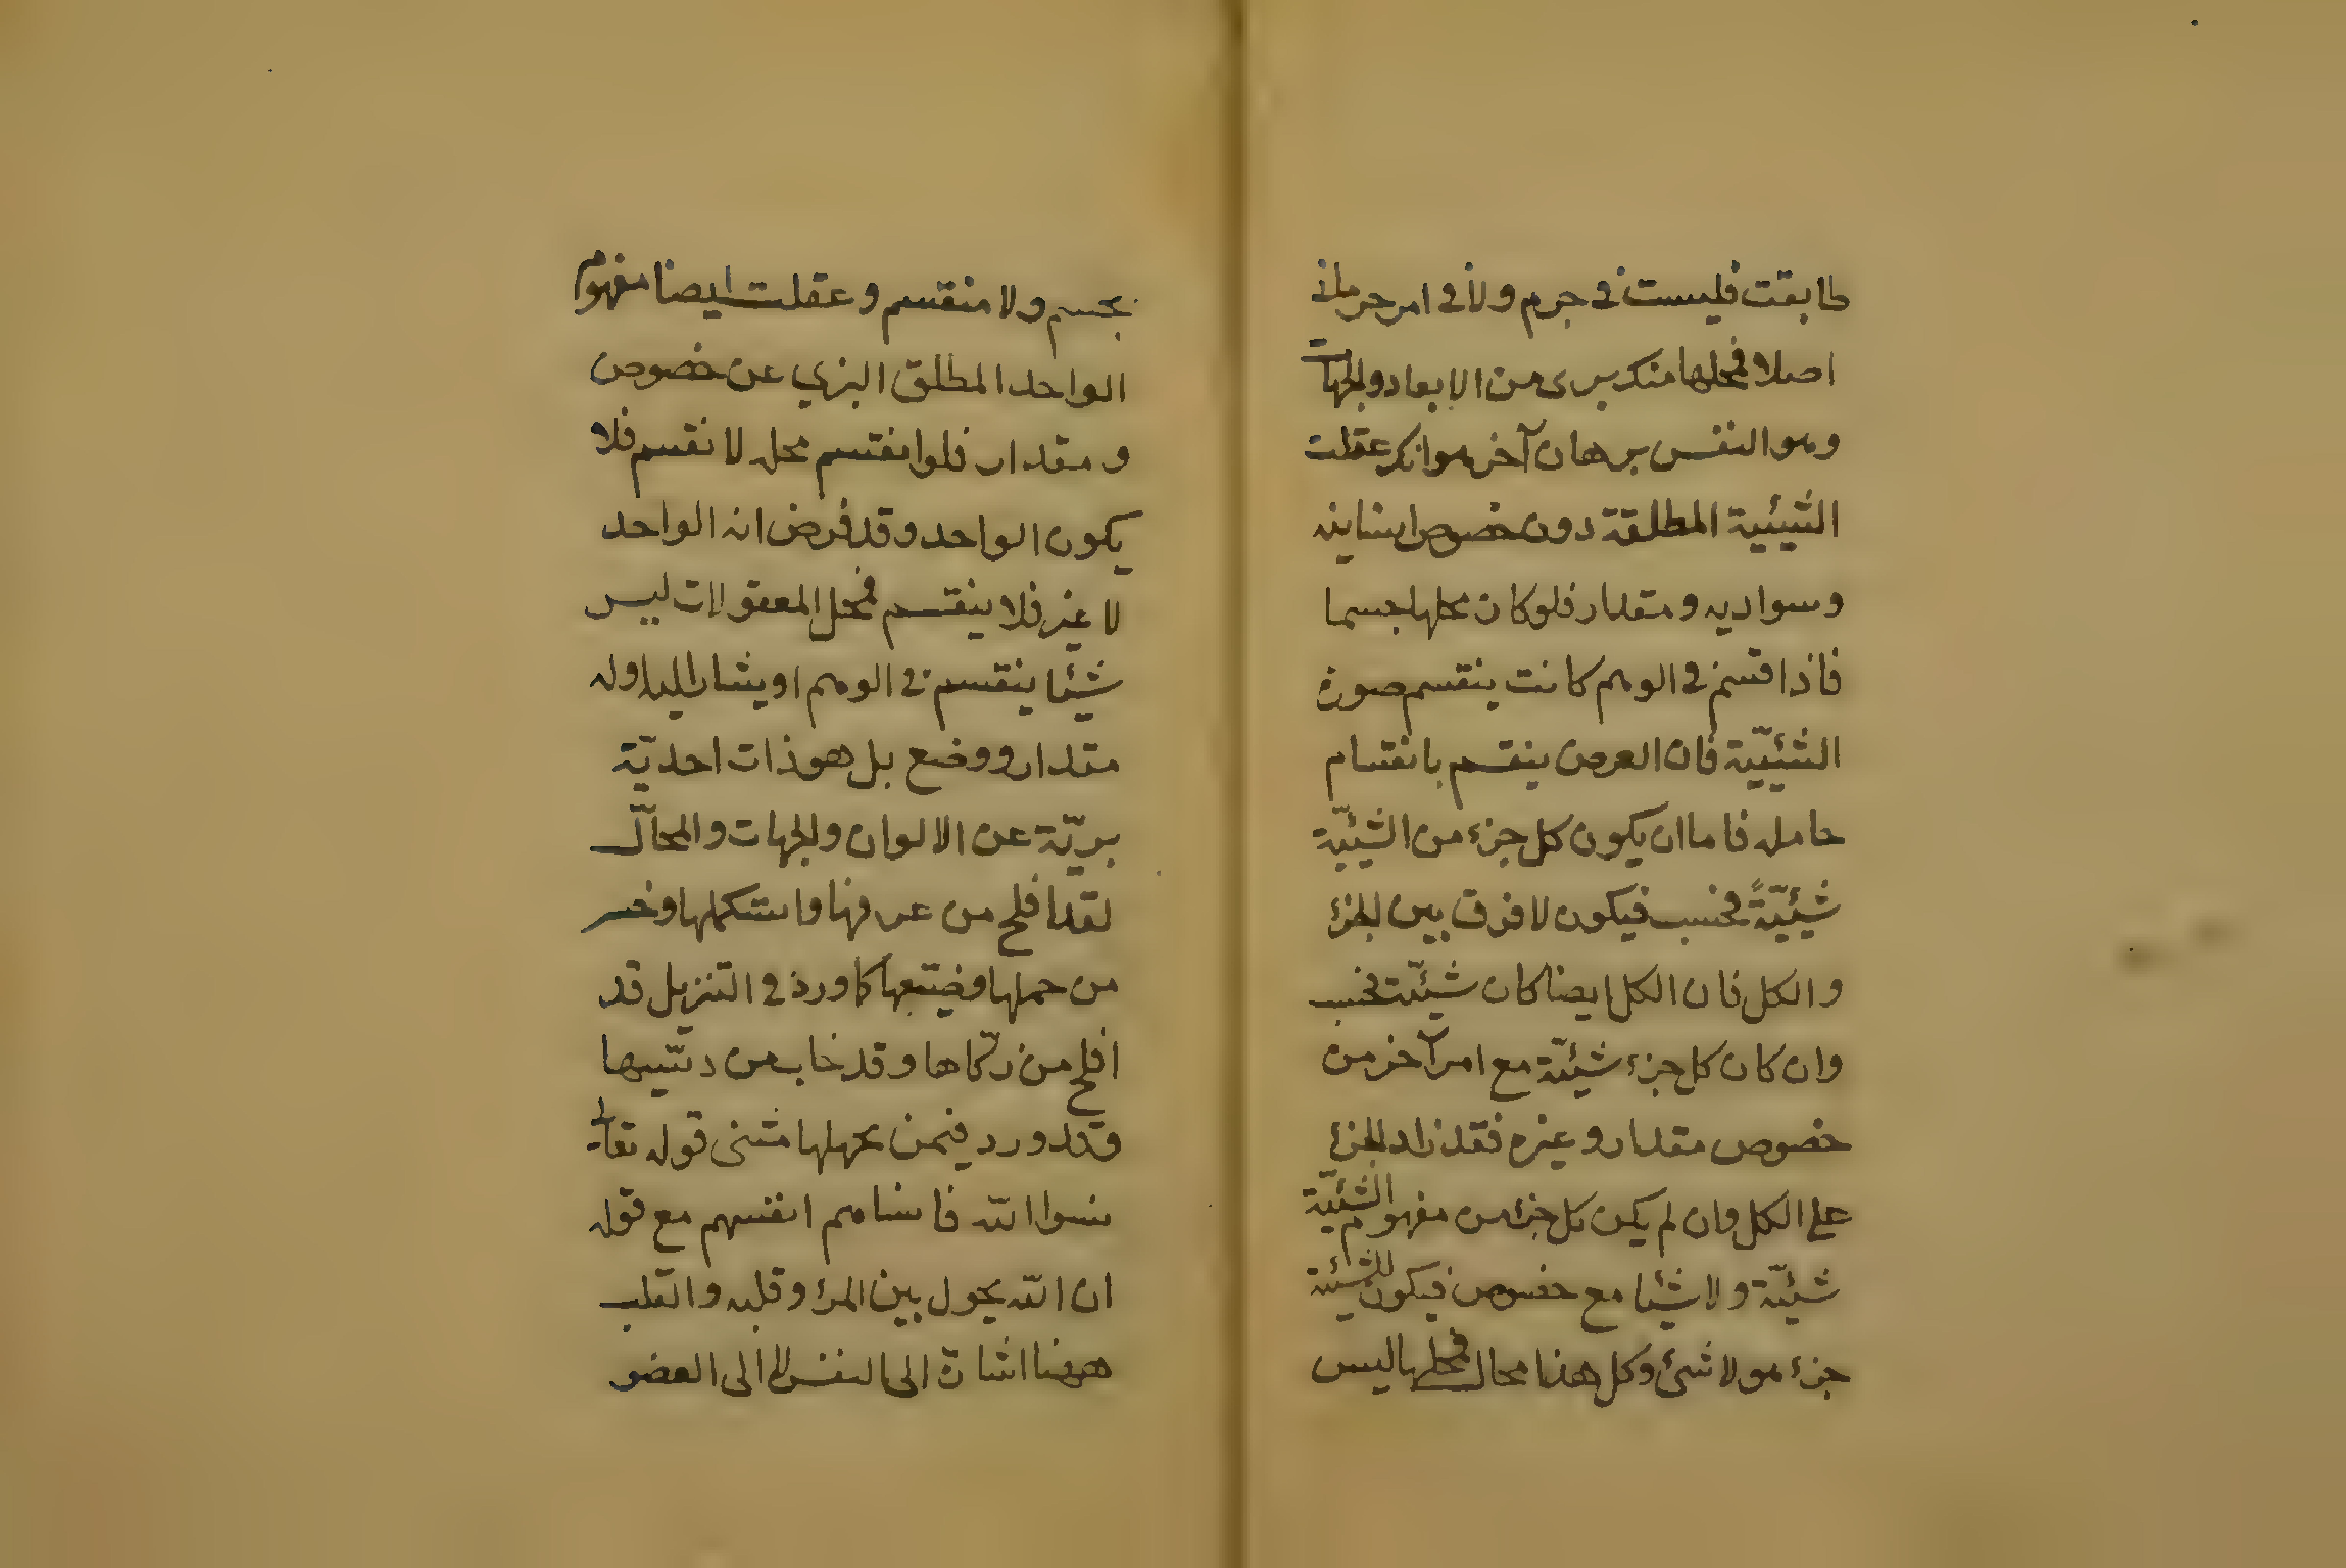 طابقت فليست في جرم ولا في امر جرماني
اصلا فمحلها منك برى من الابعاد والجهات
وهو النفس برهان آخر هو انك عقلت
الشيئية المطلقة دون خصوص
وسوادية ومقدار فلو كان محلها جسما
فاذا قسم في الوهم كانت ينقسم صورة
الشيئيّة فان العرض ينقسم بانقسام
حامله فاما ان يكون كل جزء من الشيئيّة
شيئيّةً فحسب فيكون لا فرق بين الجزء
والكل فان الكل ايضا كان شيئيّة فحسب
وان كان كل جزء شيئيّة مع امر آخر من
خصوص مقدار وغيره فقد زاد الجزء
على الكل وان لم يكن كل جزء من مفهوم الشيئيّة
شيئيّة ولا شيئا مع خصوص فيكون للشيئية
جزء هو لا شئ وكل هذا محال فمحلها ليس
بجسم ولا منقسم وعقلت ايضا مفهوم
الواحد المطلق البري عن خصوص
ومقدار فلو انقسم محله لانقسم فلا
يكون الواحد وقد فرض انه الواحد
لا غير فلا ينقسم فمحل المعقولات ليس
شيئا ينقسم في الوهم او يشار اليه اوله
مقدار ووضع بل هو ذات احديّة
بريّة عن الالوان والجهات والمحالّ
لقد افلح من عرفها واستكملها وخسر
من حملها وضيّعها كما ورد في التنزيل قد
افلح من زكّاها وقد خاب من دسّيها
وقد ورد فيمن يجهلها مثنى قوله تعالى
نسوا الله فانساهم انفسهم مع قوله
ان الله يحول بين المرء وقلبه والقلب
ههنا اشارة الى النفس لا الى العضو